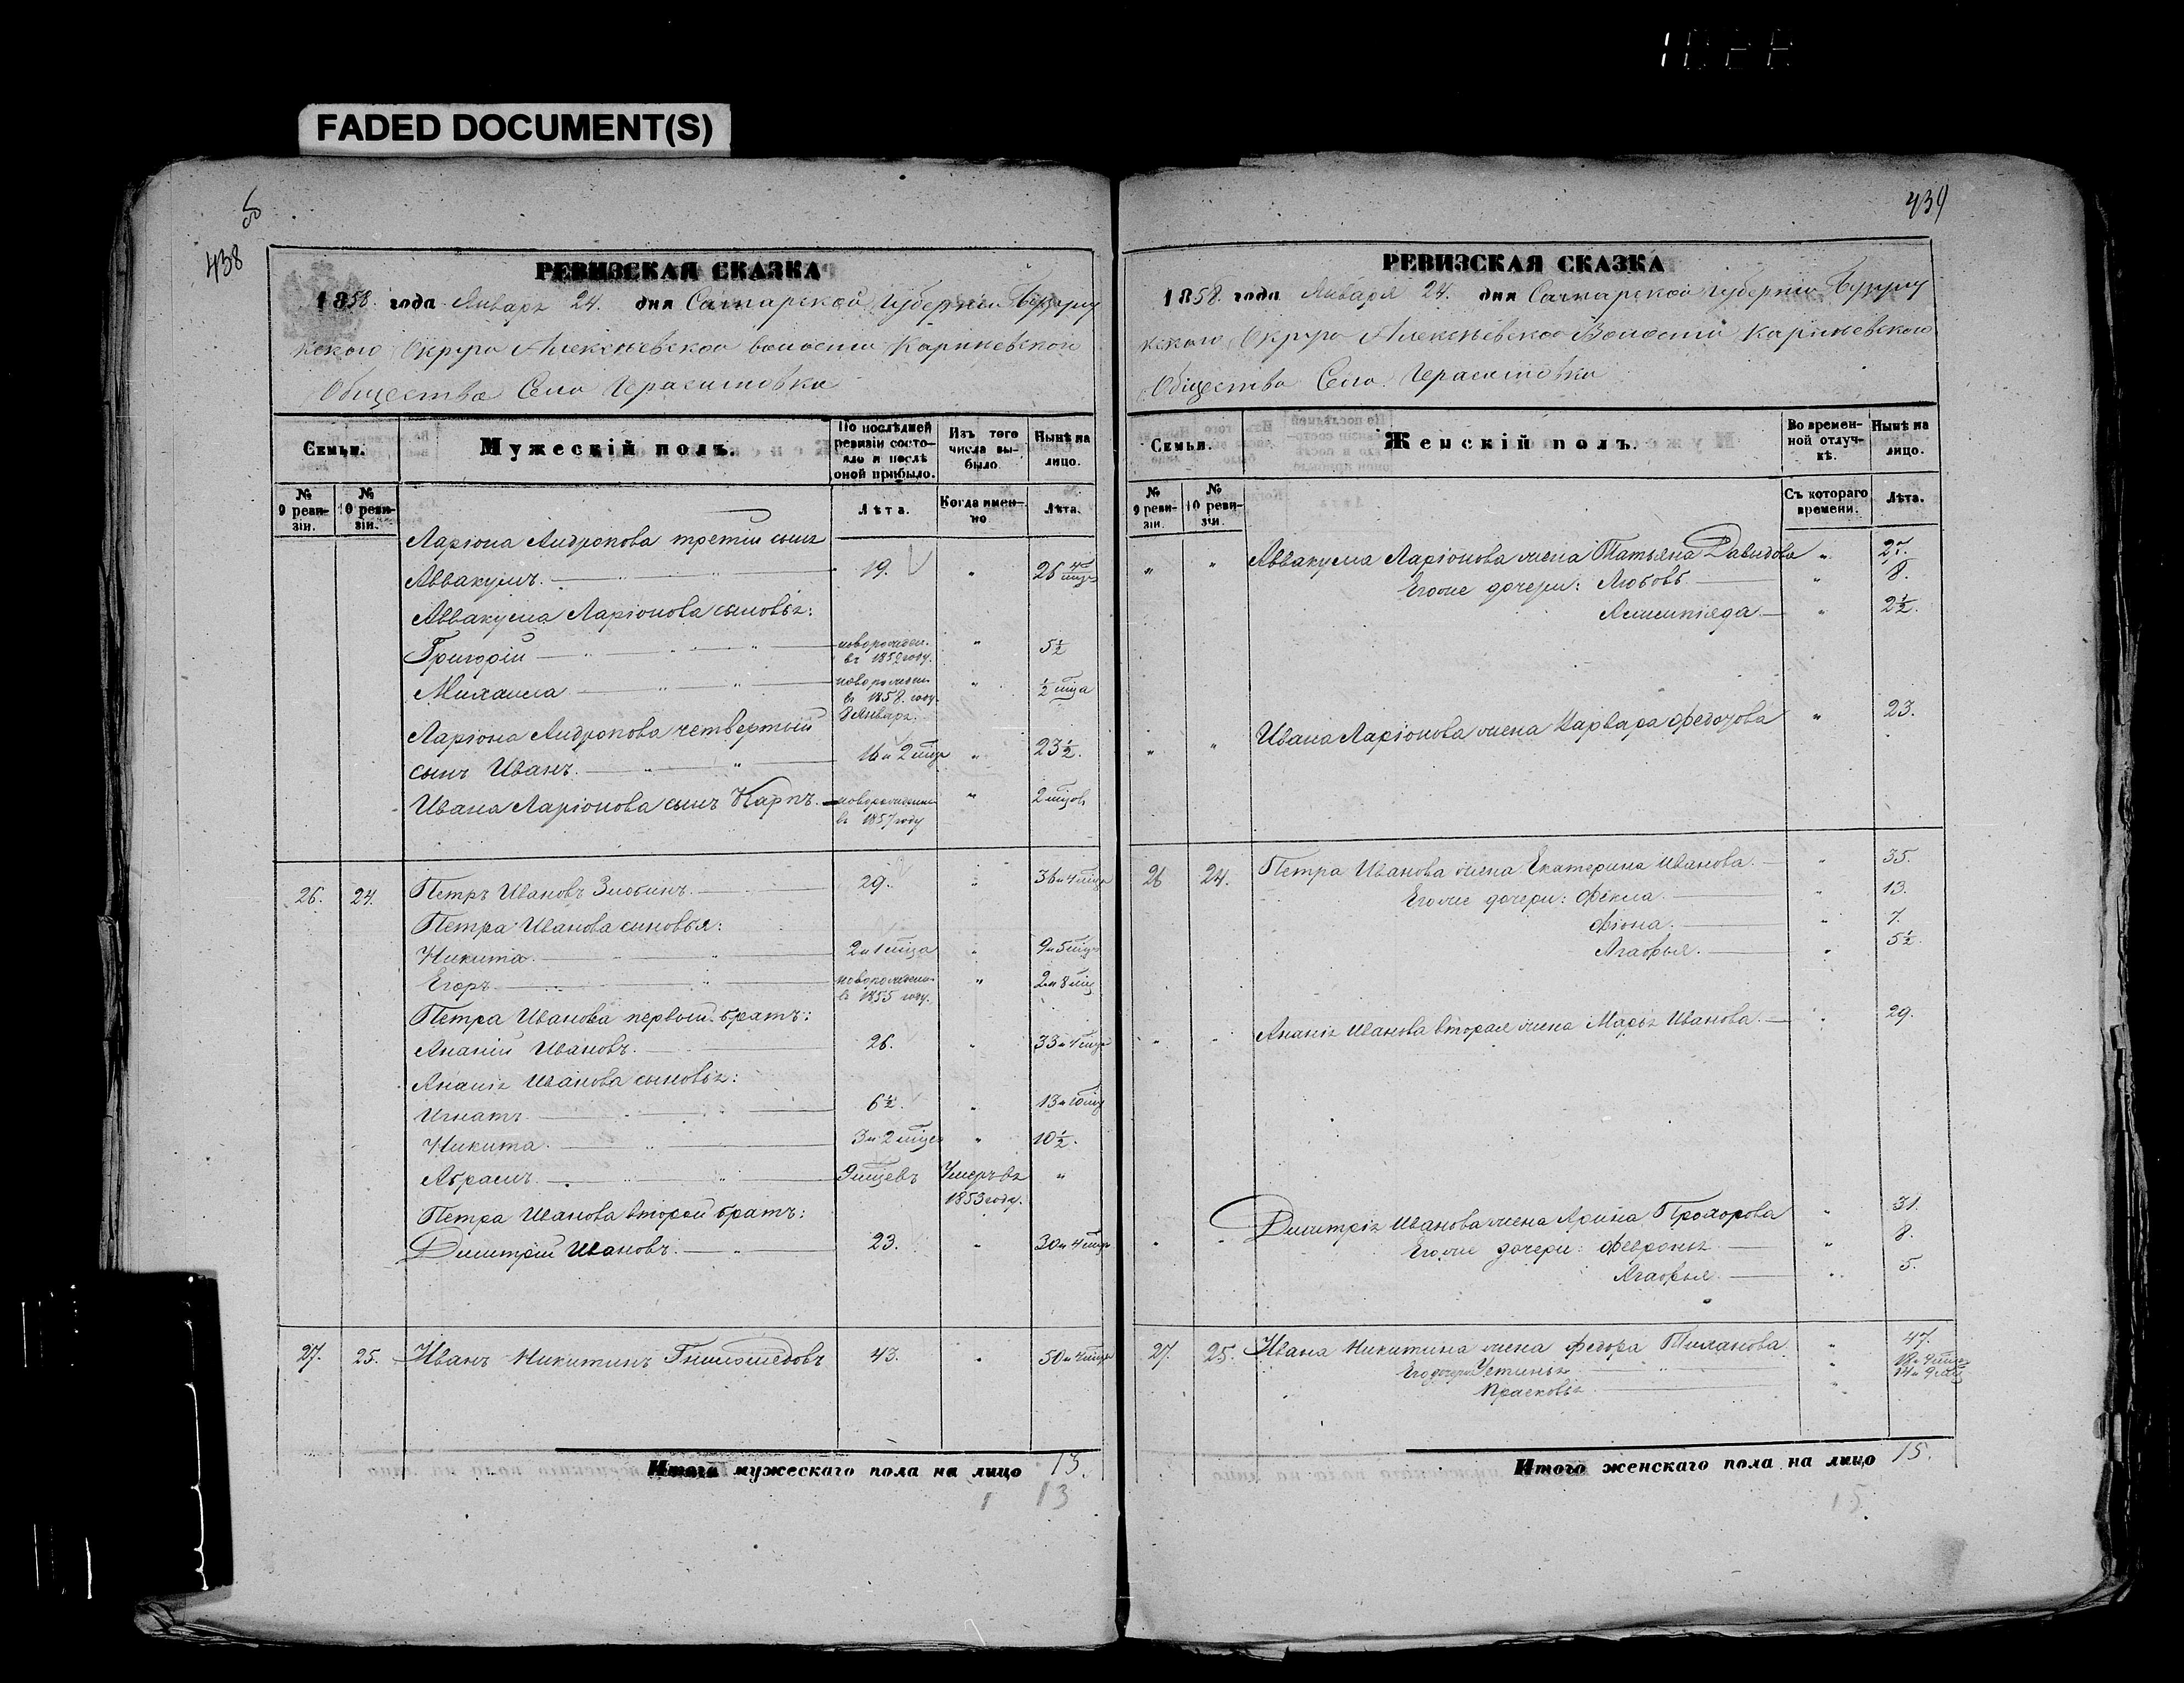 FADED DOCUMENT(S)
438
РЕВИЗСКАЯ СКАЗКА
1858. года Января 24. дня Самарской Губерніи Бузулу
кскаго Округа Алексѣевской волости
Общества Села Герасимовки
Семьи.
Мужескій полъ.
По послѣдней ревизіи состояло и послѣ оной прибыло.
Изъ того числа выбыло
Нынѣ на лицо.
№ 9 ревизіи.
№ 10 ревизіи.
Лѣта.
Когда именно
Лѣта.
Ларіона Андронова третій сынъ
Аввакумъ. 19. "
Аввакума Ларіонова сыновья:
Григорій новорожден. въ 1852 году. " 5½
Михаила въ 1858. году. 8 Января. " ½ мца
Ларіона Андронова четвертый
сынъ Иванъ. 16 и 2 мца " 23½.
Ивана Ларіонова сынъ Карпъ. новорожден. въ 1857 году " 2 мцов
26. 24. Петръ Ивановъ Злобинъ. 29. " 36 и 4 мца
Петра Иванова сыновья:
Никита. 2 и 1 мца " 9 и 5 мцъ
Егоръ новорожден. въ 1855 году. " 2 и 8 мц
Петра Иванова первый братъ:
Ананій Ивановъ. 26. " 33 и 4 мца
Ананія Иванова сыновья:
Игнатъ 6½. " 13 и 10 мц
Никита. 3 и 2 мца " 10½.
Абрамъ. 9 мцевъ Умеръ въ 1853 году. "
Петра Иванова второй братъ:
Дмитрій Ивановъ. 23. " 30 и 4 мца
27. 25. Иванъ Никитинъ 43. " 50 и 4 мца
Итого мужескаго пола на лицо 13.
1 13
439
РЕВИЗСКАЯ СКАЗКА
1858. года Января 24. дня Самарской Губерніи Бузулу
кскаго Округа Алексѣевской Волости
Общества Села Герасимовки
Семьи.
Женскій полъ.
Во временной отлучкѣ.
Нынѣ на лицо.
№ 9 ревизіи.
№ 10 ревизіи.
Съ котораго времени.
Лѣта.
" " Аввакума Ларіонова жена Татьяна Давыдова " 27.
Егоже дочери: Любовь " 8.
" 2½.
" " Ивана Ларіонова жена Варвара Федотова " 23.
26 24. Петра Иванова жена Екатерина Иванова. " 35.
Егоже дочери: Фекла. " 13.
Фіона. " 7.
Агафья. " 5½.
" " Ананія Иванова вторая жена Марья Иванова. " 29.
" " Дмитрія Иванова жена Арина Прохорова " 31.
Егоже дочери: Февронья " 8.
Агафья. " 5.
27. 25. Ивана Никитина жена Федора Тиханова " 47.
Его дочери Устинья "
Прасковья " 14 и 9 мц
Итого женскаго пола на лицо 15.
15